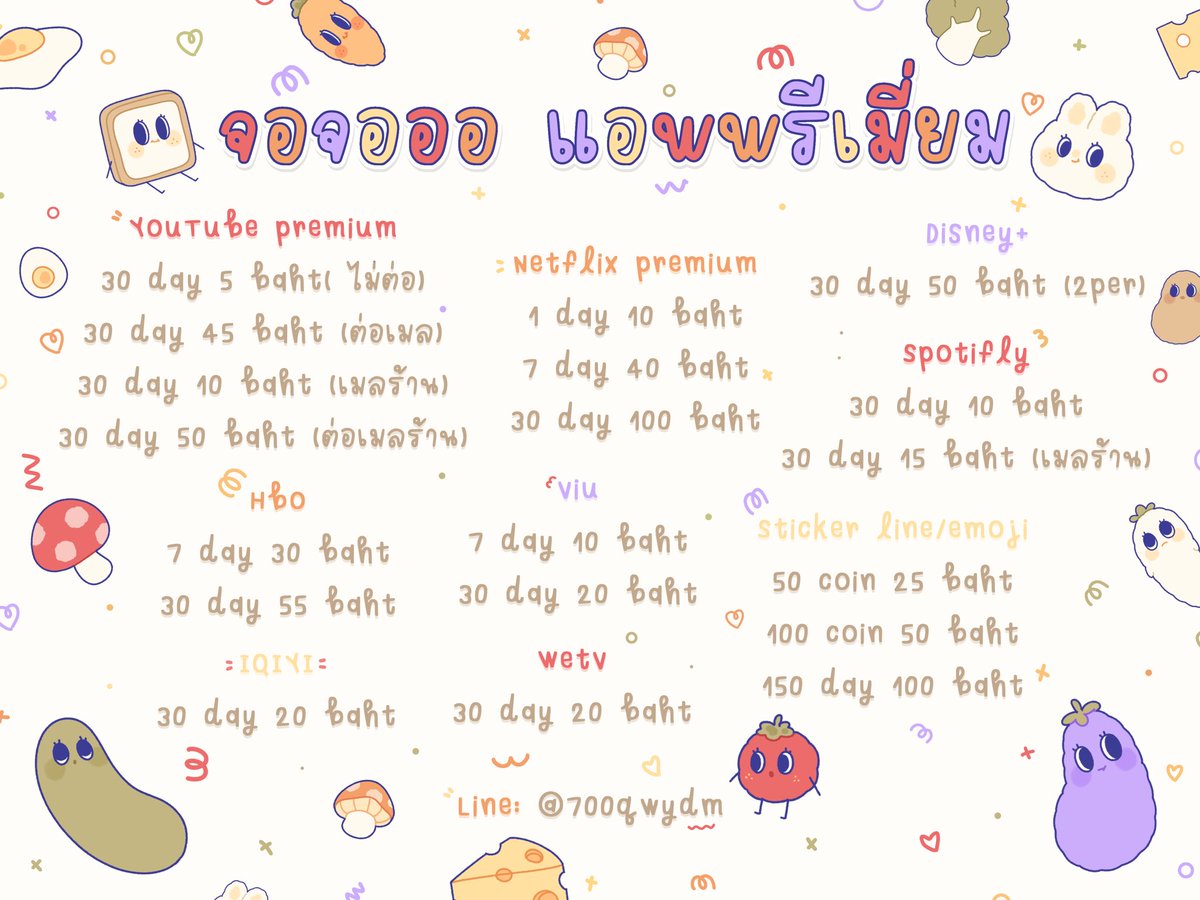 จอจอออ แอพพรีเมี่ยม
YouTube premium
30 day 5 baht( ไม่ต่อ)
30 day 45 baht (ต่อเมล)
30 day 10 baht (เมลร้าน)
30 day 50 baht (ต่อเมลร้าน)
Netflix premium
1 day 10 baht
7 day 40 baht
30 day 100 baht
Disney+
30 day 50 baht (2per)
spotifly
30 day 10 baht
30 day 15 baht (เมลร้าน)
Hbo
7 day 30 baht
30 day 55 baht
Viu
7 day 10 baht
30 day 20 baht
sticker line/emoji
50 coin 25 baht
100 coin 50 baht
150 day 100 baht
IQIYI
30 day 20 baht
wetv
30 day 20 baht
Line: @700qwydm